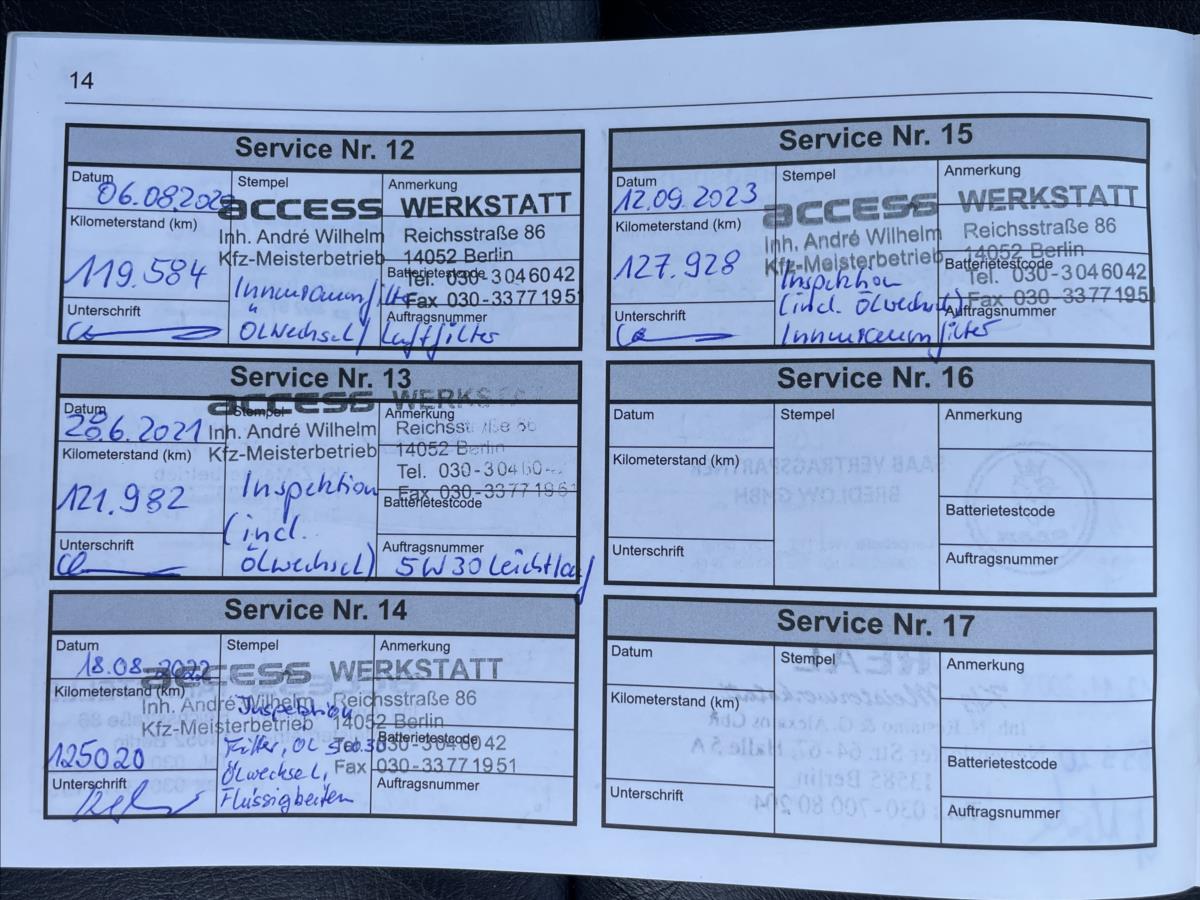 14
Service Nr. 12
Datum
06.08.2020
Stempel
Anmerkung
access WERKSTATT
Kilometerstand (km)
Inh. André Wilhelm
Reichsstraße 86
Kfz-Meisterbetrieb
14052 Berlin
119.584
Batterietestcode
Tel. 030-3046042
Innenraumfilter
Fax 030-3377195
Unterschrift
Auftragsnummer
Ölwechsel/ Luftfilter
Service Nr. 13
Datum
28.6.2021
Stempel
Anmerkung
access WERKS
Kilometerstand (km)
Inh. André Wilhelm
Reichsstraße 86
Kfz-Meisterbetrieb
14052 Berlin
Tel. 030-30460
121.982
Inspektion
Fax 030-3377 1951
Batterietestcode
(incl.
Unterschrift
Auftragsnummer
Ölwechsel)
5W30 Leichtlauf
Service Nr. 14
Datum
18.08.2022
Stempel
Anmerkung
access WERKSTATT
Kilometerstand (km)
Inh. André Wilhelm
Reichsstraße 86
Inspektion
Kfz-Meisterbetrieb
14052 Berlin
125020
Filter, Öl 5w30
Batterietestcode
030-3046042
Ölwechsel,
Fax 030-33771951
Unterschrift
Auftragsnummer
Flüssigkeiten
Service Nr. 15
Datum
12.09.2023
Stempel
Anmerkung
access WERKSTATT
Kilometerstand (km)
Inh. André Wilhelm
Reichsstraße 86
Kfz-Meisterbetrieb
14052 Berlin
127.928
Batterietestcode
Tel. 030-3046042
Inspektion
(incl. Ölwechsel)
Fax 030-3377195
Unterschrift
Auftragsnummer
Innenraumfilter
Service Nr. 16
Datum
Stempel
Anmerkung
Kilometerstand (km)
Batterietestcode
Unterschrift
Auftragsnummer
Service Nr. 17
Datum
Stempel
Anmerkung
Kilometerstand (km)
Batterietestcode
Unterschrift
Auftragsnummer